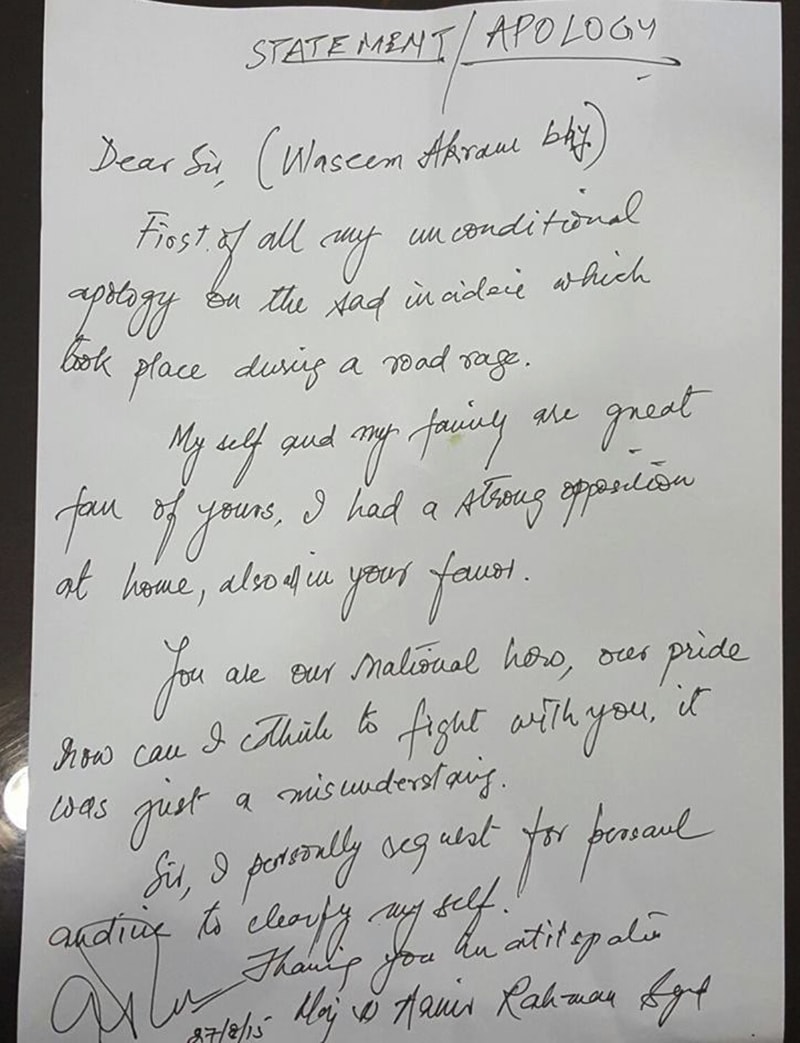 STATEMENT/APOLOGY
Dear Sir, (Waseem Akram bhj)
First of all my unconditional
apology on the sad incideie which
took place during a road rage.
My self and my faimly are great
fan of yours, I had a strong opposition
at home, also all in your favor.
You are our national hero, our pride
how can I think to fight with you, it
was just a misunderstaing.
Sir, I personlly request for persaul
to clearfy my self.
Thaning you in
27/8/15 Maj Rahman